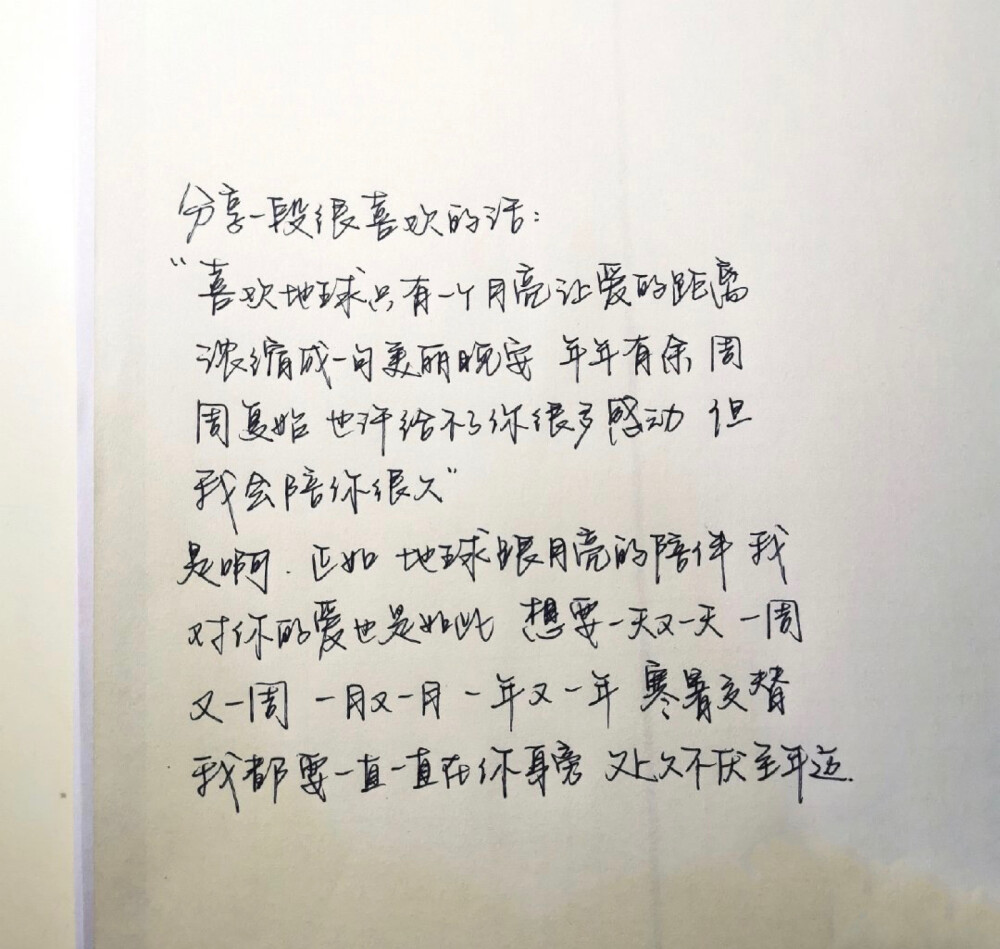 分享一段很喜欢的话：
“喜欢地球只有一个月亮让爱的距离
浓缩成一句美丽晚安 年年有余 周
周复始 也许给不了你很多感动 但
我会陪你很久”
是啊. 正如 地球跟月亮的陪伴 我
对你的爱也是如此 想要一天又一天 一周
又一周 一月又一月 一年又一年 寒暑交替
我都要一直一直在你身旁 处久不厌至年迈.